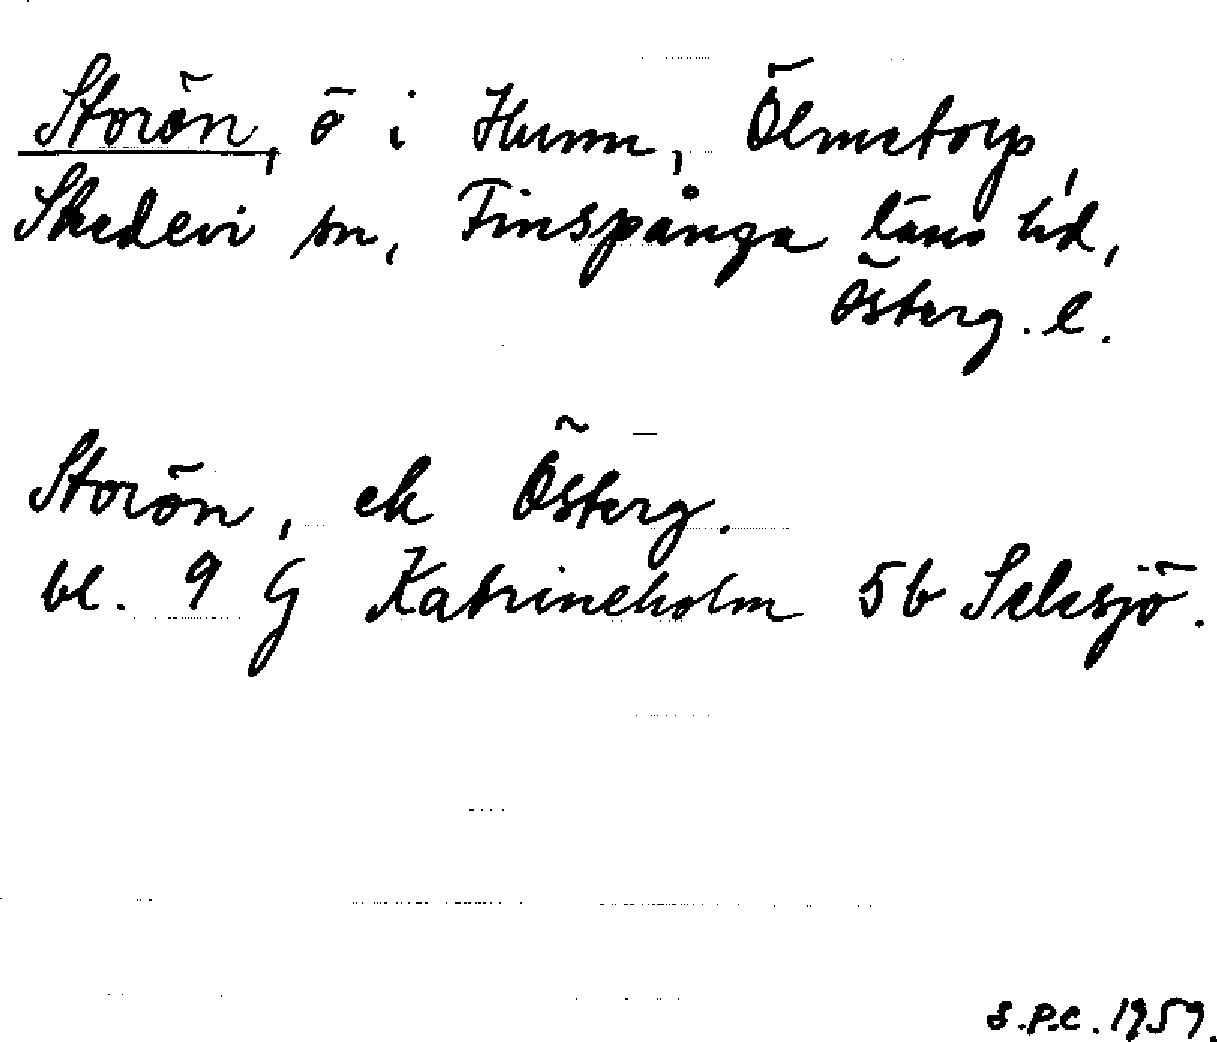 Storön, ö i Hunn, Ölmetorp,
Skedevi sn, Finspånga läns hd,
Österg. l.
Storön, ek Österg.
bl. 9 G Katrineholm 5b
S.P.C. 1959.